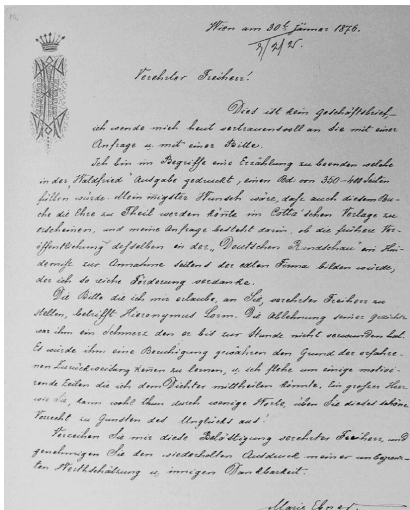 Wien am 30t. Jänner 1876.
Verehrter Freiherr!
Dies ist kein Geschäftsbrief –
ich wende mich heut vertrauensvoll an Sie mit einer
Anfrage u. mit einer Bitte.
Ich bin im Begriffe eine Erzählung zu beenden welche
in der „Waldfried" Ausgabe gedruckt, einen Bd von 350–400 Seiten
füllen würde. Mein innigster Wunsch wäre, daß auch diesem Bu-
che die Ehre zu Theil werden könte im Cotta'schen Verlage zu
erscheinen, und meine Anfrage besteht darin, ob die frühere Ver-
öffentlichung desselben in der „Deutschen Rundschau" ein Hin-
derniß zur Annahme seitens der edlen Firma bilden würde,
der ich so reiche Förderung verdanke.
Die Bitte die ich mir erlaube, an Sie, verehrter Freiherr zu
stellen, betrifft Hieronymus Lorm. Die Ablehnung seiner Gedichte
war ihm ein Schmerz den er bis zur Stunde nicht verwunden hat.
Es würde ihm eine Beruhigung gewähren den Grund der erfahre-
nen Zurückweisung kenen zu lernen, u. ich flehe um einige motivi-
rende Zeilen die ich dem Dichter mittheilen könnte. Ein großer Herr
wie Sie, kann wohl thun durch wenige Worte, üben Sie dieses schöne
Vorrecht zu Gunsten des Unglücks aus!
Verzeihen Sie mir diese Belästigung verehrter Freiherr, und
genehmigen Sie den wiederholten Ausdruck meiner unbegrenz-
ten Werthschätzung u. innigen Dankbarkeit.
Marie Ebner